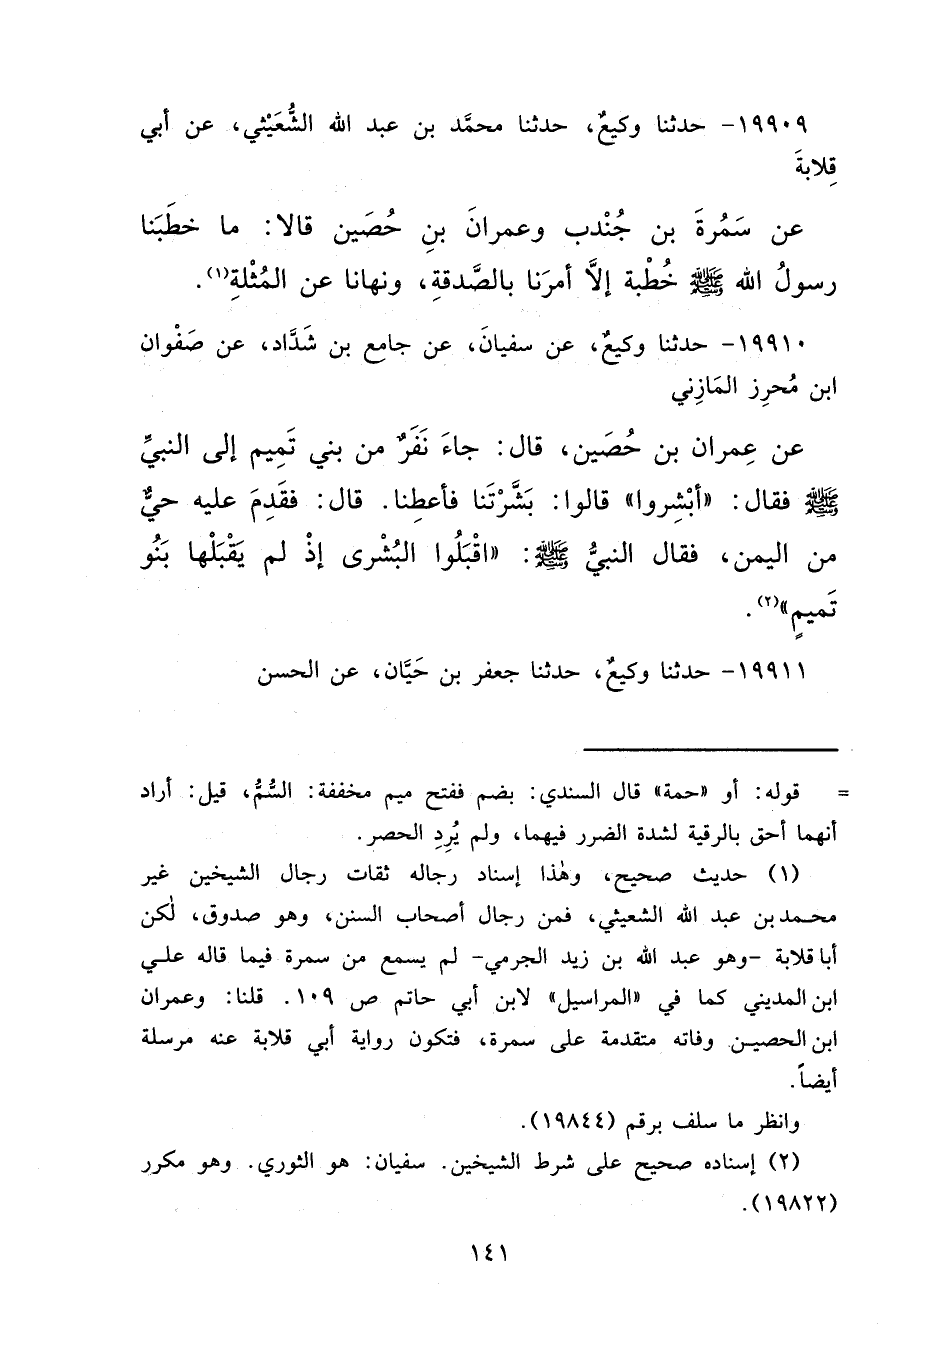 ١٩٩٠٩- حدثنا وكيعٌ، حدثنا محمَّد بن عبد الله الشُّعَيْثي، عن أبي
قِلابةَ
عن سَمُرةَ بن جُنْدب وعمرانَ بنِ حُصَين قالا: ما خطَبَنا
رسولُ الله ﷺ خُطْبة إلاَّ أمرَنا بالصَّدقةِ، ونهانا عن المُثْلةِ(١).
١٩٩١٠- حدثنا وكيعٌ، عن سفيانَ، عن جامع بن شَدَّاد، عن صَفْوان
ابن مُحرِز المَازِني
عن عِمران بن حُصَين، قال: جاءَ نَفَرٌ من بني تَمِيم إلى النبيِّ
ﷺ فقال: «أبْشِروا» قالوا: بَشَّرْتَنا فأعطِنا. قال: فقَدِمَ عليه حيٌّ
من اليمن، فقال النبيُّ ﷺ: «اقْبَلُوا البُشْرى إذْ لم يَقْبَلْها بَنُو
تَميمٍ»(٢).
١٩٩١١- حدثنا وكيعٌ، حدثنا جعفر بن حَيَّان، عن الحسن
= قوله: أو «حمة» قال السندي: بضم ففتح ميم مخففة: السُّمُّ، قيل: أراد
أنهما أحق بالرقية لشدة الضرر فيهما، ولم يُرِدِ الحصر.
(١) حديث صحيح، وهٰذا إسناد رجاله ثقات رجال الشيخين غير
محمد بن عبد الله الشعيثي، فمن رجال أصحاب السنن، وهو صدوق، لٰكن
أبا قلابة -وهو عبد الله بن زيد الجرمي- لم يسمع من سمرة فيما قاله علي
ابن المديني كما في «المراسيل» لابن أبي حاتم ص ١٠٩. قلنا: وعمران
ابن الحصين وفاته متقدمة على سمرة، فتكون رواية أبي قلابة عنه مرسلة
أيضاً.
وانظر ما سلف برقم (١٩٨٤٤).
(٢) إسناده صحيح على شرط الشيخين. سفيان: هو الثوري. وهو مكرر
(١٩٨٢٢).
١٤١